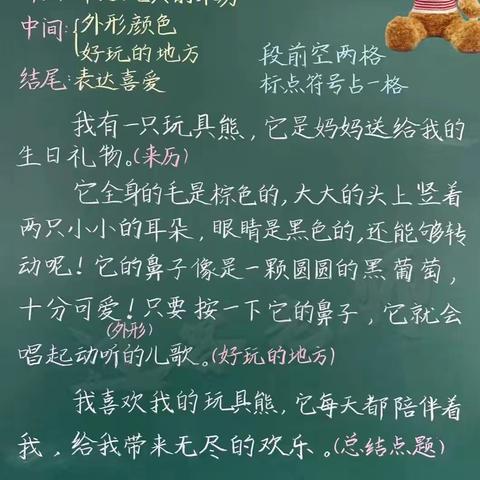 中间:{外形颜色
好玩的地方
段前空两格
结尾:表达喜爱
标点符号占一格
我有一只玩具熊,它是妈妈送给我的
生日礼物。(来历)
它全身的毛是棕色的,大大的头上竖着
两只小小的耳朵,眼睛是黑色的,还能够转
动呢!它的鼻子像是一颗圆圆的黑葡萄,
十分可爱!只要按一下它的鼻子,它就会
(外形)
唱起动听的儿歌。(好玩的地方)
我喜欢我的玩具熊,它每天都陪伴着
我,给我带来无尽的欢乐。(总结点题)